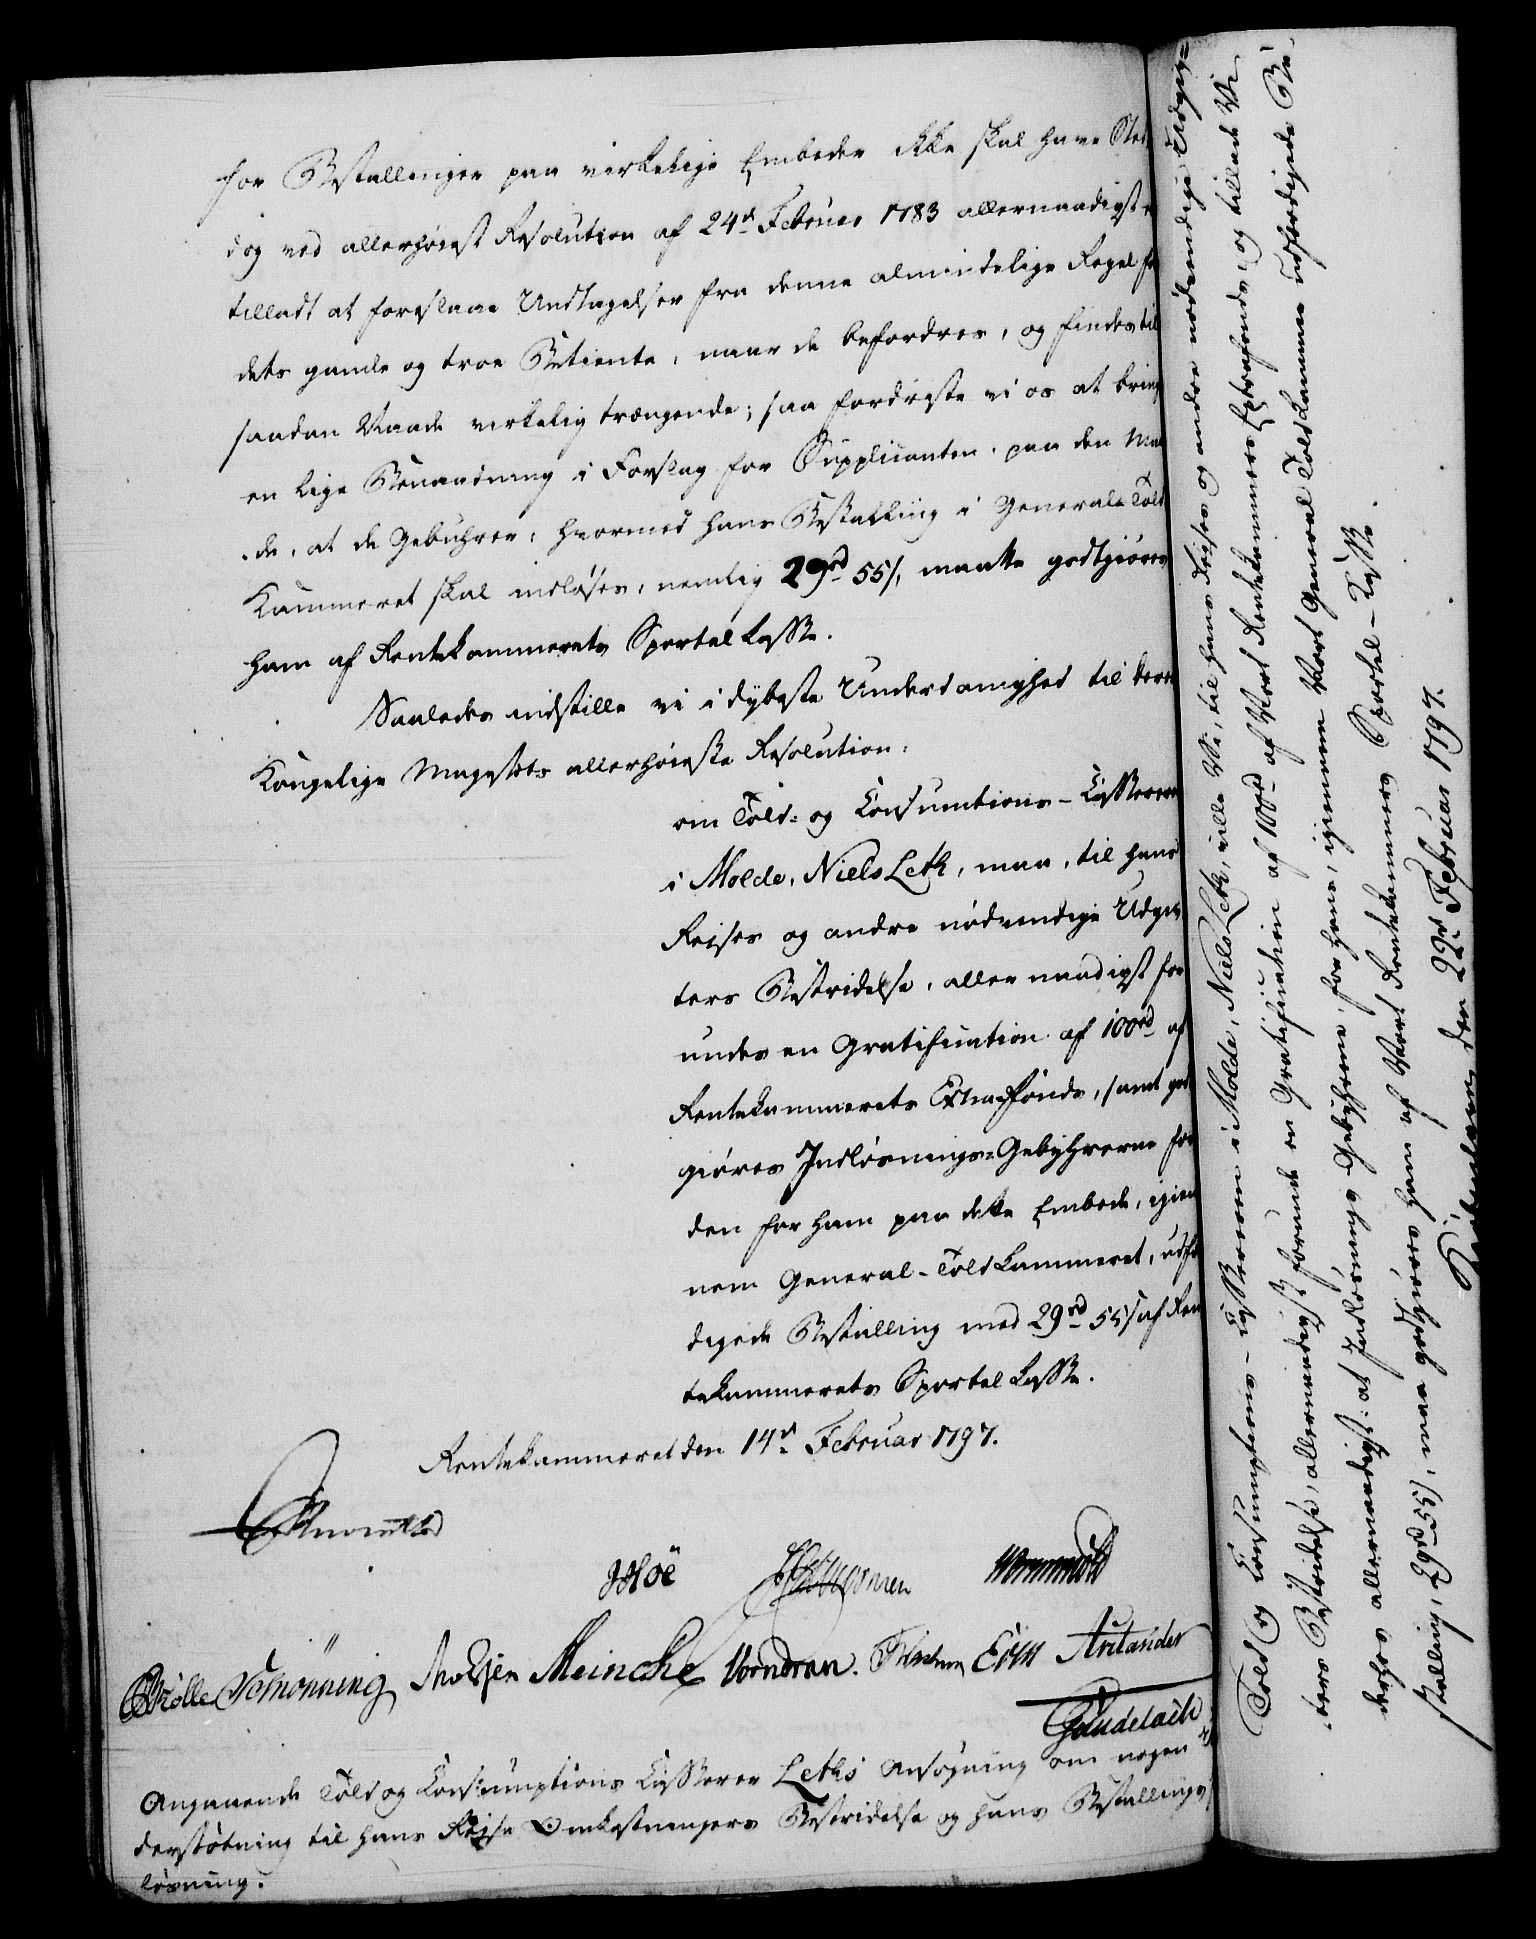 for Bestallinger paa virkelige Embeder ikke skal have Sted
dog ved allerhøiest Resolution af 24d Februar 1783 allernaadigst
tilladt at foreslaae Undtagelser fra denne almindelige Regel for
dets gamle og troe Betiente, naar de befordres, og findes til
saadan Naade virkelig trængende; saa fordriste vi os at bringe
en lige Benaadning i Forslag for Supplicanten, paa den Maa
de, at de Gebuhrer, hvormed hans Bestalling i General-Told
Kammeret skal indløses, nemlig 29rd 55s, maatte godtgiøres
ham af Rentekammerets Sportel Casse.
Saaledes indstille vi i dybeste Underdanighed til Deres
Kongelige Majestets allerhøieste Resolution:
om Told- og Consumtions-Casserern
i Molde, Niels Leth, maa, til hans
Rejses og andre nødvendige Udgif
ters Bestridelse, allernaadigst for
undes en Gratification af 100rd af
Rentekammerets Extra Fonds, samt god
giøres Indløsnings-Gebyhrerne for
den for ham paa dette Embede, igien
nem General-Toldkammeret, udfær
digede Bestalling med 29rd 55s af Ren
tekammerets Sportel Casse.
Rentekammeret den 14d Februar 1797.
Høë Wormskiold
Schönning Meincke Vorndran. Eün Arctander
Gudelach
Angaaende Told og Consumptions Casserer Leths Ansøgning om nogen Un
derstøtning til hans Rejse Omkostningers Bestridelse og hans Bestallings
løsning.
Told og Consumptions-Casserern i Molde, Niels Leth, ville Vi, til hans Rejses og andre nødvendige Udgif-
ters Bestridelse, allernaadigst forunde en Gratification af 100rd af Vort Rentekammers Extrafonds, og tillade Vi
derhos allernaadigst: at Indløsnings Gebyhrerne, for hans, igiennem Vort General Toldkammer udfærdigede Be-
stalling, 29rd 55s, maa godtgiøres ham af Vort Rentekammers Sportel-Casse.
den 22de Februar 1797.